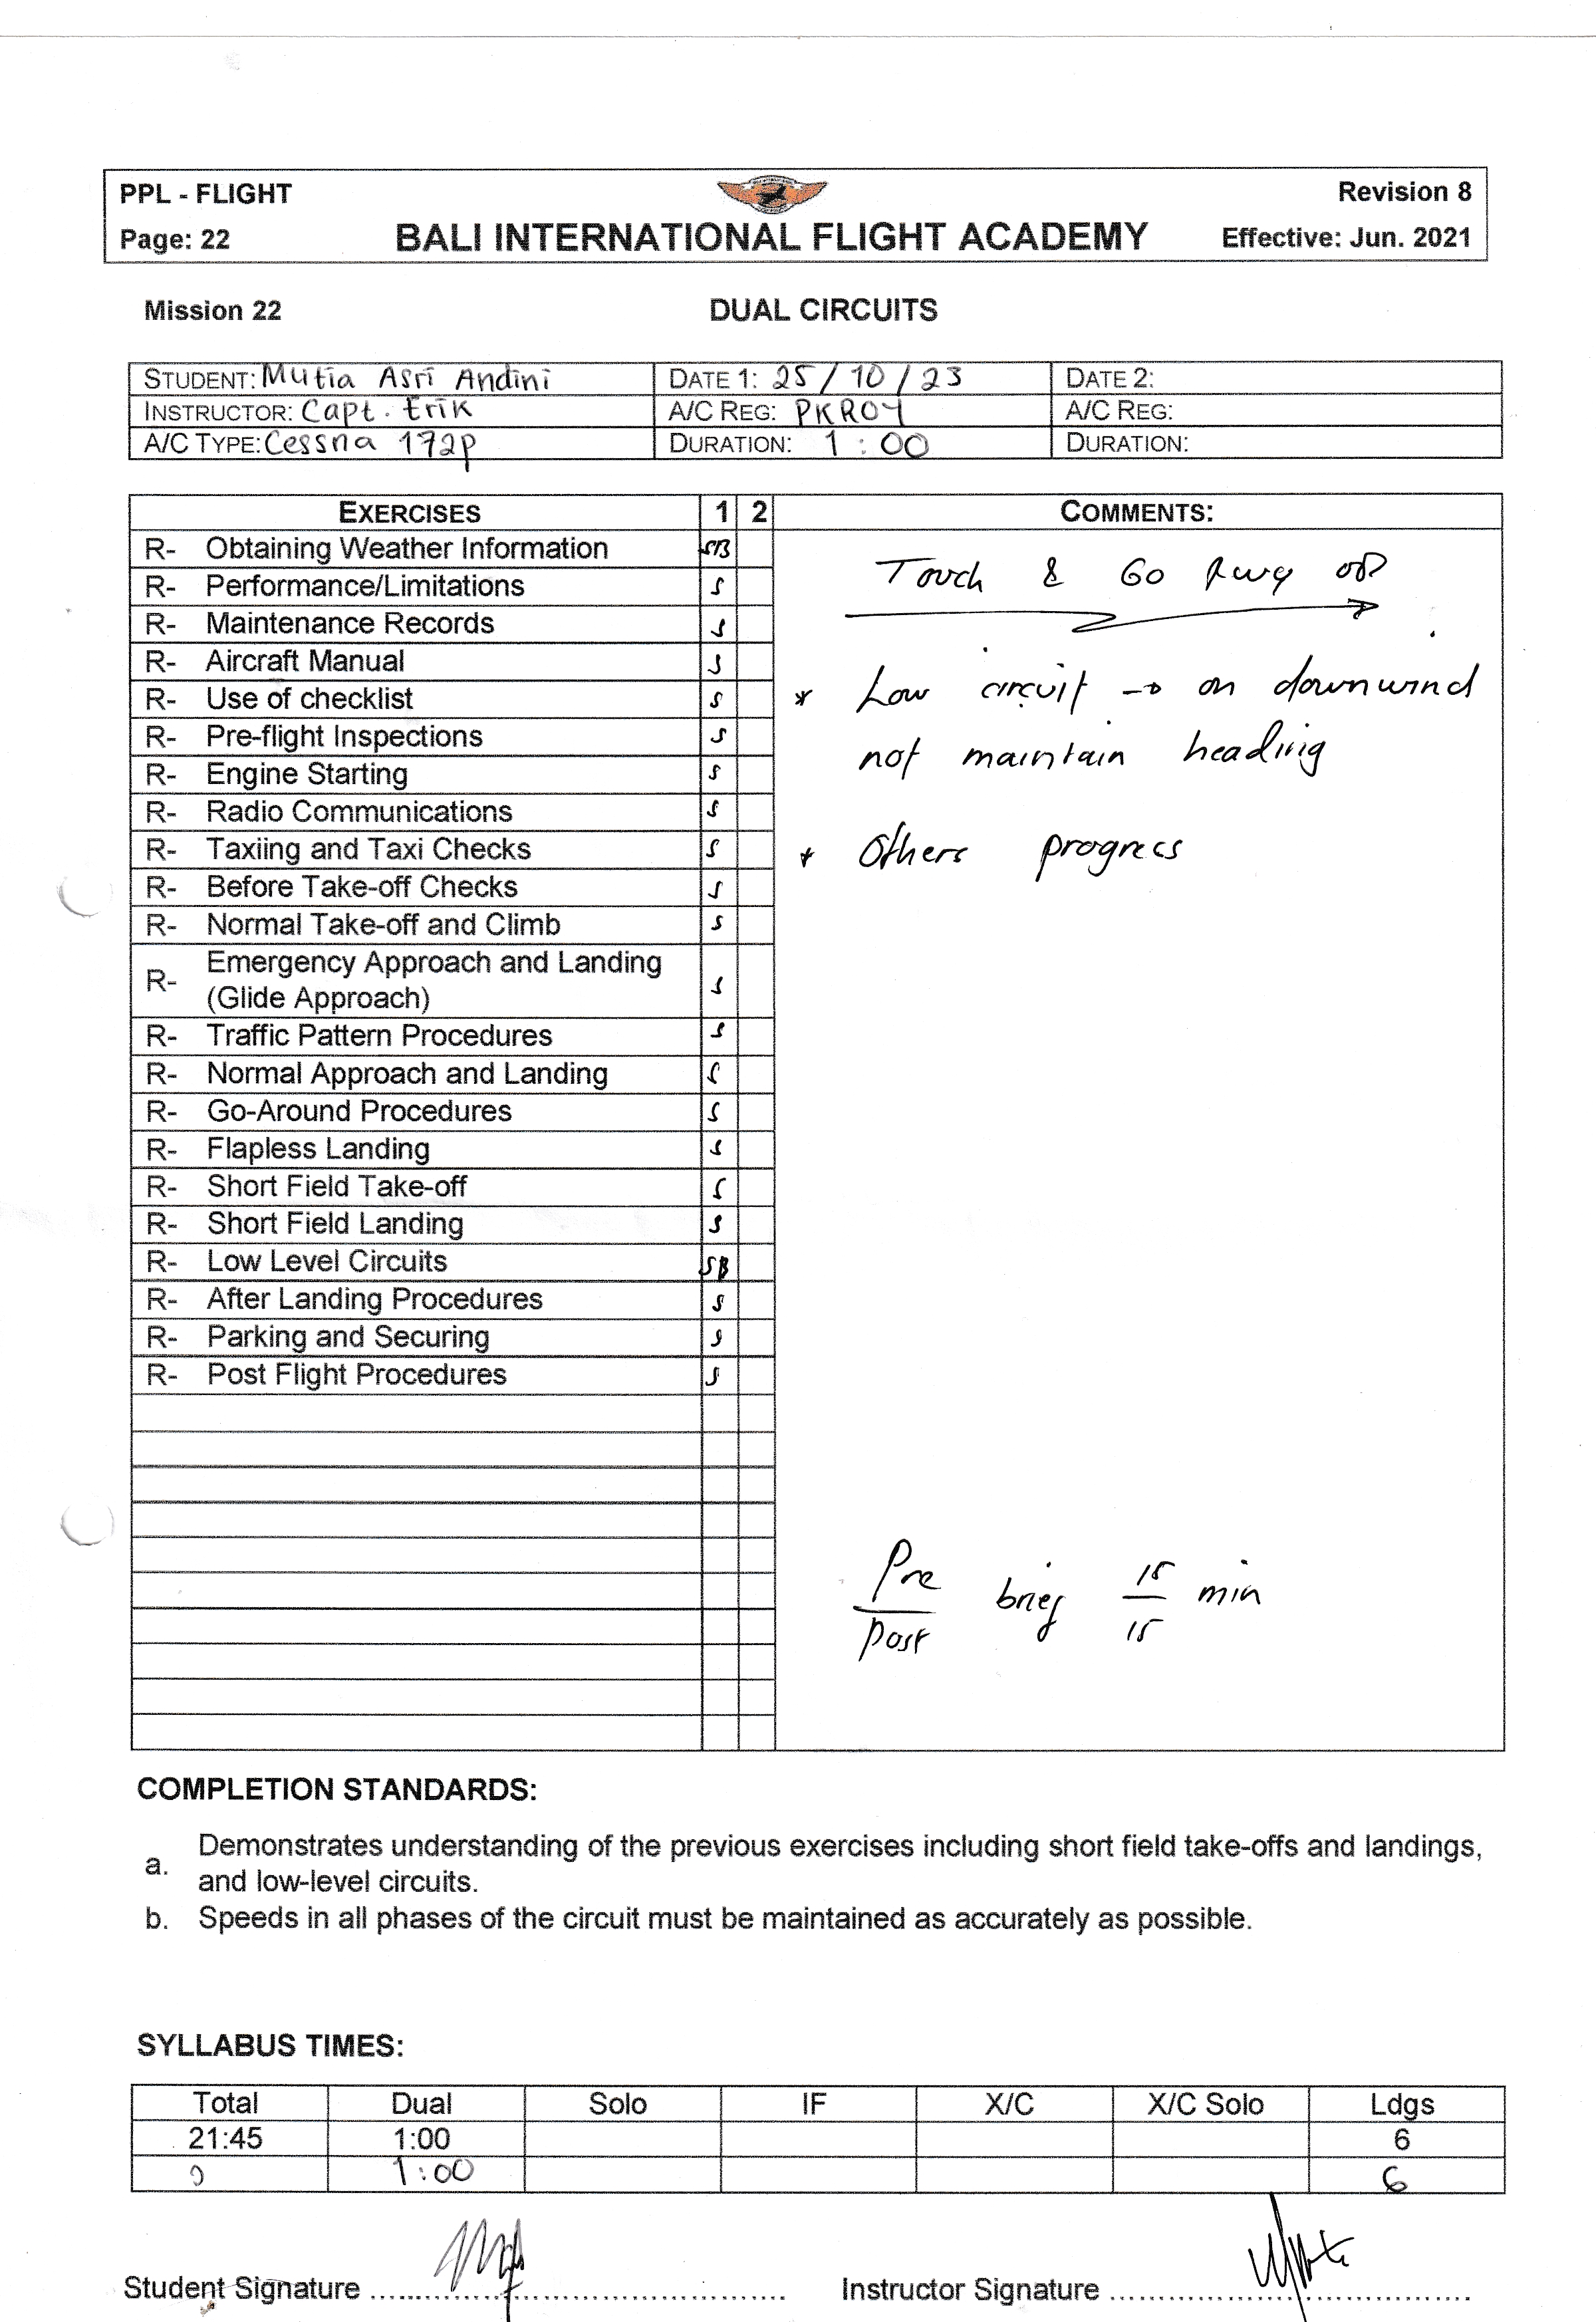 PPL - FLIGHT
Revision 8
Page: 22
BALI INTERNATIONAL FLIGHT ACADEMY
Effective: Jun. 2021
Mission 22
DUAL CIRCUITS
STUDENT: Mutia Asri Andini
DATE 1: 25 / 10 / 23
DATE 2:
INSTRUCTOR: Capt. Erik
A/C REG: PKROY
A/C REG:
A/C TYPE: Cessna 172p
DURATION: 1 : 00
DURATION:
EXERCISES 1 2 COMMENTS:
R- Obtaining Weather Information SB
R- Performance/Limitations S
R- Maintenance Records S
R- Aircraft Manual S
R- Use of checklist S
R- Pre-flight Inspections S
R- Engine Starting S
R- Radio Communications S
R- Taxiing and Taxi Checks S
R- Before Take-off Checks S
R- Normal Take-off and Climb S
R- Emergency Approach and Landing
(Glide Approach) S
R- Traffic Pattern Procedures S
R- Normal Approach and Landing S
R- Go-Around Procedures S
R- Flapless Landing S
R- Short Field Take-off S
R- Short Field Landing S
R- Low Level Circuits SB
R- After Landing Procedures S
R- Parking and Securing S
R- Post Flight Procedures S
Touch & Go Rwy
* Low circuit → on downwind
not maintain heading
* Others progress
Pre
post
brief
15
15
min
COMPLETION STANDARDS:
a. Demonstrates understanding of the previous exercises including short field take-offs and landings,
and low-level circuits.
b. Speeds in all phases of the circuit must be maintained as accurately as possible.
SYLLABUS TIMES:
Total Dual Solo IF X/C X/C Solo Ldgs
21:45 1:00 6
1:00 6
Student Signature ..........
Instructor Signature ..........